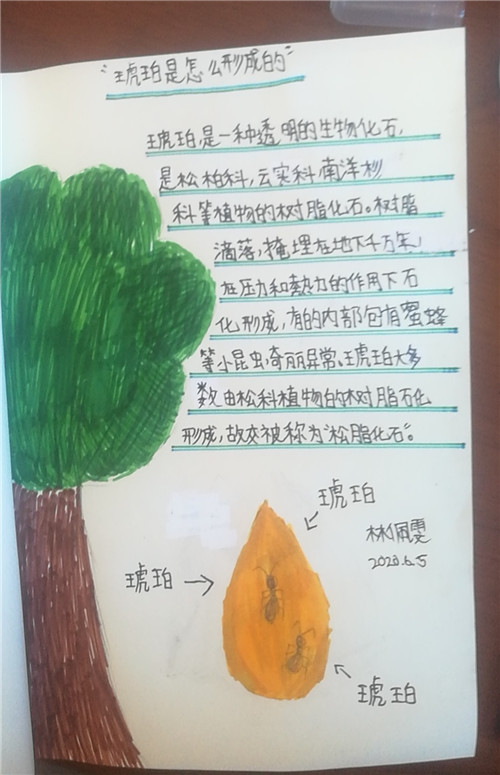 "琥珀是怎么形成的"
琥珀,是一种透明的生物化石,
是松柏科,云实科,南洋杉
科等植物的树脂化石。树脂
滴落,掩埋在地下千万年,
在压力和热力的作用下石
化形成,有的内部包有蜜蜂
等小昆虫,奇丽异常、琥珀大多
数由松科植物的树脂石化
形成,故又被称为"松脂化石"。
琥珀
林佩雯
琥珀
琥珀